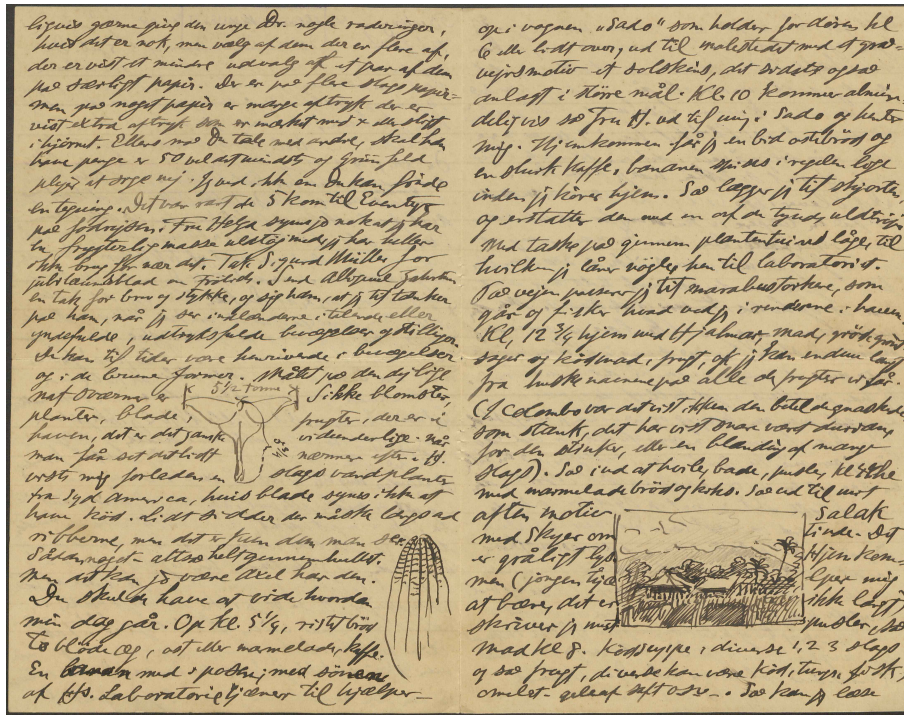 ligvis gærne give den unge Dr. nogle raderinger,
hvis det er nok, men vælg af dem der er flere af,
der er vist et mindre udvalg af et par af dem
på særligt papir. Der er på flere slags papir -
men på noget papir er mange aftryk der er
vist extra aftryk som er mærket med x eller sligt
i hjørnet. Ellers må Du tale med andre, skal han
have penge er 50 vel det mindste og Grünfeld
plejer at sørge Jeg ved ikke om Du kan finde
en tegning. Det var rart de 5 kom til Eventyr
på fodrejsen. Fru Helga synes jo nok at jeg har
en frygtelig masse uldtøj med, jeg har heller
ikke brug for nær det. Tak Sigurd Müller for
jubilæumsblad om Frölich. Send
en tak for brev og stykke, og sig ham, at jeg tit tænker
på ham, når jeg ser inlænderne i talende eller
yndefulde, udtryksfulde bevægelser og stillinger
De kan til tider være henrivende i bevægelser
og i de brune former. Målet på den dejlige
natsværmer er 5 1/2 tomme Sikke blomster,
planter, blade, frugter, der er i
haven, det er det ganske vidunderlige. når
man får set det lidt nærmere efter. H.
viste mig forleden en slags vandplante
fra Syd america, hvis blade synes ikke at
have kød. Lidt sidder der måske langs ad
ribberne, men det er kun dem man ser.
Sådan noget - altså helt gennemhullet.
men det kan jo være Axel har den.
Du skulde have at vide hvordan
min dag går. Op Kl. 5 1/4, ristet brød
To blöde æg, ost eller marmelade, kaffe.
En banan med i posen; med sönnen
af Hs. Laboratorietjæner til hjælper -
op i vognen "Sado" som holder for døren kl
6 eller lidt over, ud til malestedet med et grå-
vejrsmotiv et solskins, det sidste også
anlagt i större mål. Kl. 10 kommer almin-
deligvis så Fru H. ud til mig i Sado og henter
mig. Hjemkommen får jeg en bid ostebröd og
en slurk kaffe, bananen spises i regelen lige
inden jeg körer hjem. Så lægger jeg tit skjorten,
og erstatter den med en af de tynde uldtröjer
Med taske på gjennem plantentuinens låge, til
hvilken jeg låner nöglen hen til laboratoriet.
På vejen passerer jeg tit marabustorkene, som
går og fisker hvad ved jeg i renderne i haven.
Kl, 12 3/4 hjem med Hjalmar, mad, grönt
sager og kødmad, frugt, jeg kan endnu langt
fra huske navnene på alle de frugter vi får.
(I Colombo var det vist ikke den betel de gnaskede
som stank, det har vist snare været durian,
for den stinker, eller en blanding af mange
slags). Så ind at hvile, bade, pusle, Kl 4 the
med marmeladebröd og keks. Så ud til mit
aften motiv Salak
med Skyer om tinde. Det
er gråligt lyst Hjem kom-
men (jorgen hjælper mig
at bære, det er ikke langt)
skriver jeg mest pusler, så
mad Kl 8. Kødsuppe, diverse 1, 2 3 slags
og så frugt, diverse kan være kød, tunge, fisk,
omelet - gele af saft osv -. Så kan jeg læse